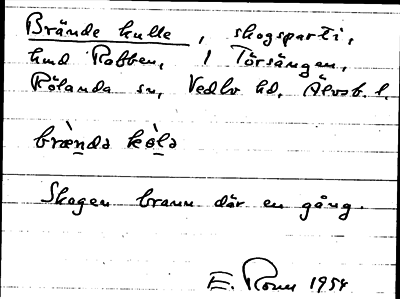 Brände kulle, skogsparti,
hmd Robben, i Törsängen,
Rölanda sn, Vedbo hd, Älvsb. l.
bræ̀ndə kòlə
Skogen brann där en gång.
E. Rosen 1954